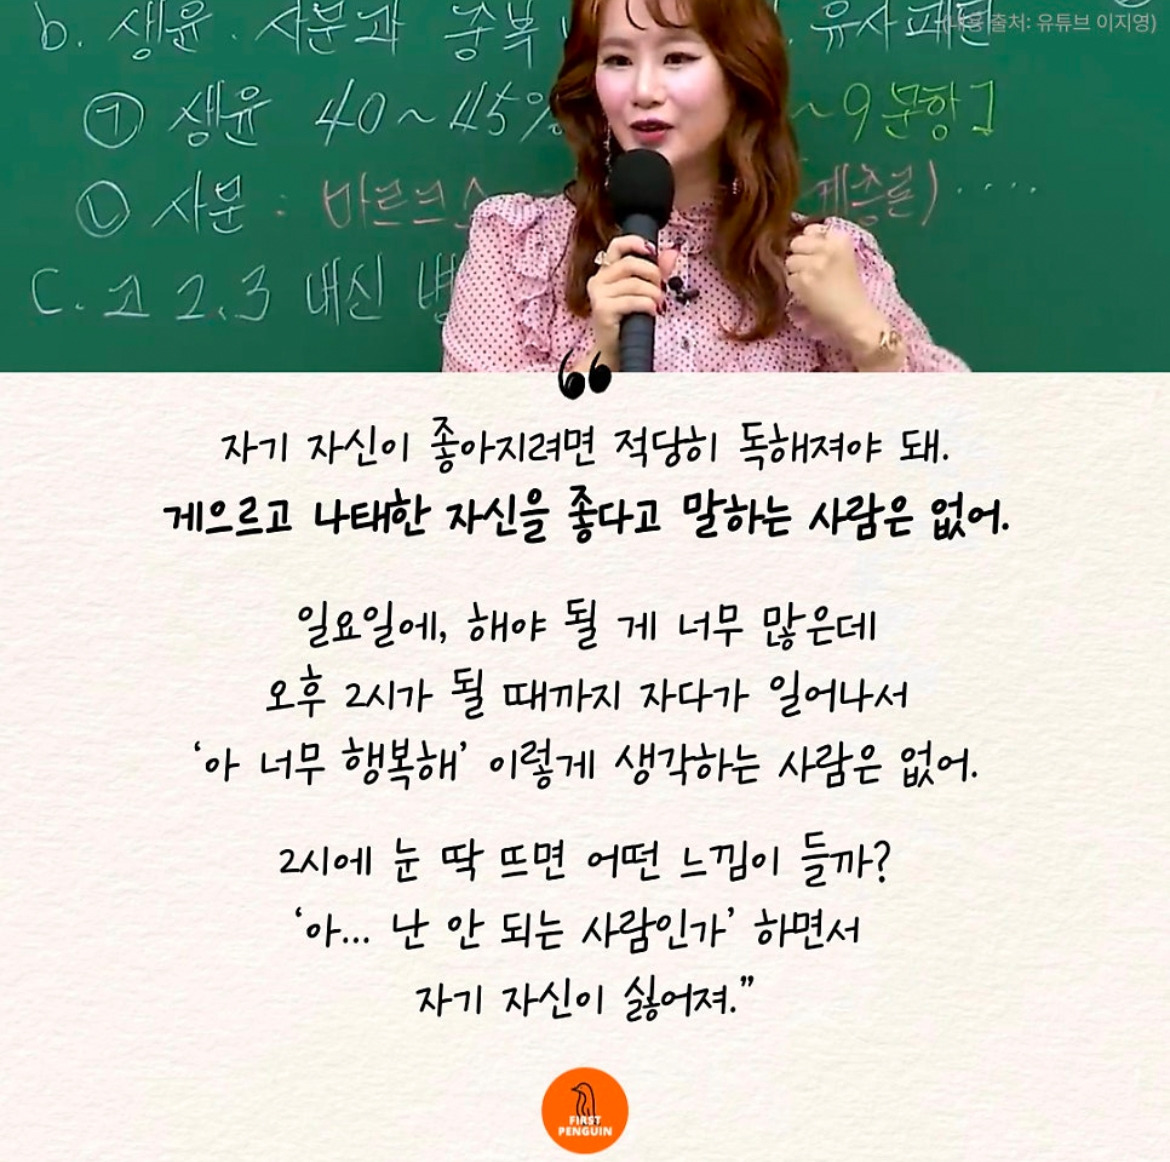 (내용 출처: 유튜브 이지영)
b. 생윤. 사문과 중복
① 생윤 40~45%
~9문항]
사문:
계층론)....
C. 고 2.3 내신
“
자기 자신이 좋아지려면 적당히 독해져야 돼.
게으르고 나태한 자신을 좋다고 말하는 사람은 없어.
일요일에, 해야 될 게 너무 많은데
오후 2시가 될 때까지 자다가 일어나서
‘아 너무 행복해’ 이렇게 생각하는 사람은 없어.
2시에 눈 딱 뜨면 어떤 느낌이 들까?
‘아... 난 안 되는 사람인가’ 하면서
자기 자신이 싫어져.”
FIRST
PENGUIN